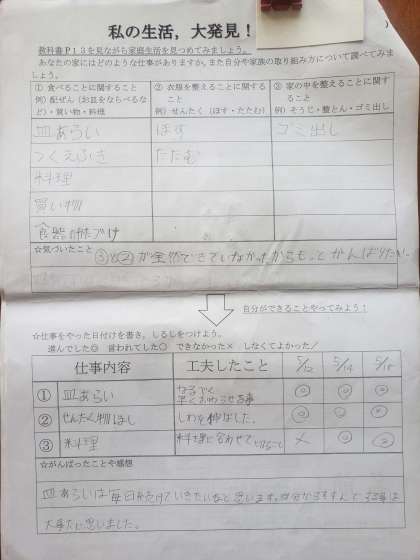 私の生活，大発見！
教科書Ｐ１３を見ながら家庭生活を見つめてみましょう。
あなたの家にはどのような仕事がありますか。また自分や家族の取り組み方について調べてみましょう。
① 食べることに関すること
例）配ぜん（お皿をならべるなど）・買い物・料理
② 衣服を整えることに関すること
例）せんたく（ほす・たたむ）
③ 家の中を整えることに関すること
例）そうじ・整とん・ゴミ出し
皿あらい ほす ゴミ出し
つくえふき たたむ
料理
買い物
食器片付け
☆気づいたこと
③と②が全然できていなかったからもっとがんばりたい。
自分ができることやってみよう！
☆仕事をやった日付けを書き，しるしをつけよう。
進んでした◎ 言われてした○ できなかった× しなくてよかった／
仕事内容 工夫したこと 5/12 5/14 5/15
① 皿あらい なるべく早くおわらせる事 ◎ ◎ ◎
② せんたく物ほし しわを伸ばした。 ◎ ◎
③ 料理 料理に合わせて × ◎ ◎
☆がんばったことや感想
皿あらいは毎日続けていきたいなと思います。自分からすすんでする事は
大事だと思いました。